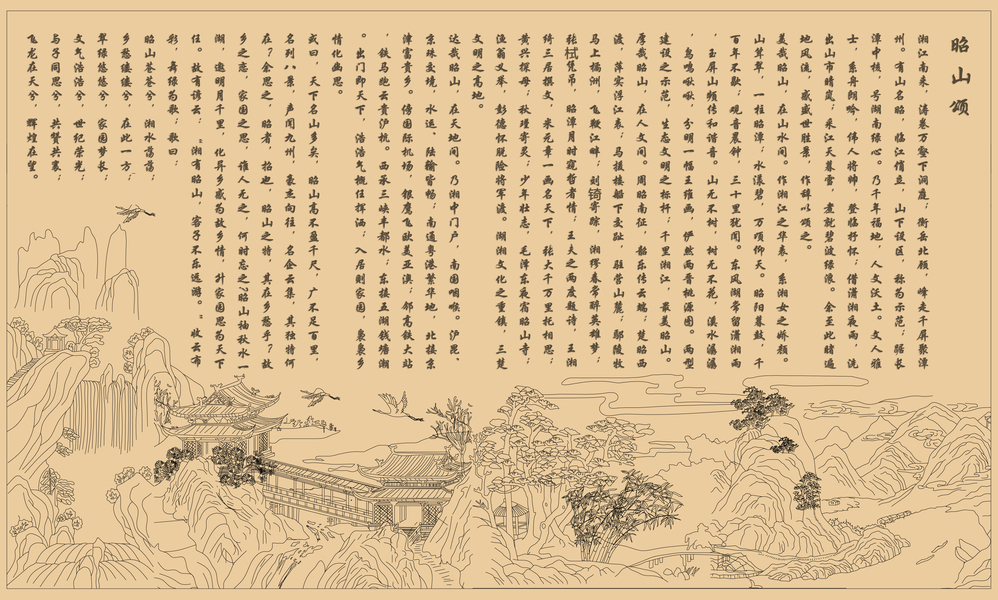 昭山颂
湘江南来，涛卷万壑下洞庭；衡岳北顾，峰走千屏聚潭
州。有山名昭，临江俏立，山下设区，称为示范；据长
潭中核，号湖南绿心。乃千年福地，人文沃土。文人雅
士，系舟朗吟，伟人将帅，登临抒怀；借潇湘夜雨，洗
出山市晴岚；采江天暮雪，煮就碧波绿浪。余至此睹遍
地风流，感盛世胜景，作辞以颂之。
美哉昭山，在山水间。作湘江之华表，系湘女之娇颜。
山耸翠，一柱昭潭；水漾碧，万顷仰天。昭阳暮鼓，千
百年不歇，观音晨钟，三十里犹闻。东风湖常留潇湘雨
，玉屏山频传和谐音。山无不树，树无不花，溪水潺潺
，鸟鸣啾啾，分明文幅王维画，俨然两晋桃源图。两型
建设之示范，生态文明之标杆，千里湘江，最美昭山。
厚哉昭山，在人文间。周昭南征，韶乐传云端；楚昭西
渡，萍实浮江表；马援楼船下交趾，驻营山麓；鄢陵牧
马上福洲，飞鞭江畔，刘锜寄踪，湘缪春常醉英雄梦；
张栻凭吊，昭潭月时窥哲者情；王夫之两度题诗，王湘
绮三居撰文，米元章一画名天下，张大千万里托相思；
黄兴探母；秋瑾寄灵；少年壮志，毛泽东夜宿昭山寺；
渔翁义举，彭德怀脱险将军渡。湖湘文化之重镇，三楚
文明之高地。
达哉昭山，在天地间。乃湘中门户，南国咽喉。沪昆、
京珠交境，水运、陆输皆畅；南通粤港繁华地，北接京
津富贵乡。傍国际机场，银鹰飞欧美亚澳；邻高铁大站
，铁马跑云贵沪杭。西承三峡丰都水；东接五湖钱塘潮
。出门即天下，浩浩气概任挥洒；入居则家园，袅袅乡
情化幽思。
或曰，天下名山多矣，昭山高不盈千尺，广不足百里，
名列八景，声闻九州，豪杰向往，名企云集，其独特何
在？余思之，昭者，招也，昭山之特，其在乡愁乎？故
乡之恋，家国之思，谁人无之，何时忘之？昭山袖秋水一
湖，邀明月千里，化异乡感为故乡情，升家园思为天下
任。故有谚云："湘有昭山，客子不乐远游。"收云布
彩，舞绿为歌；歌曰：
昭山苍苍兮，湘水荡荡；
乡愁缕缕兮，在此一方；
翠绿悠悠兮，家园梦长；
文气浩浩兮，世纪荣光；
与子同思兮，共赞共襄；
飞龙在天兮，辉煌在望。